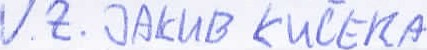 V.Z. JAKUB KUČERA